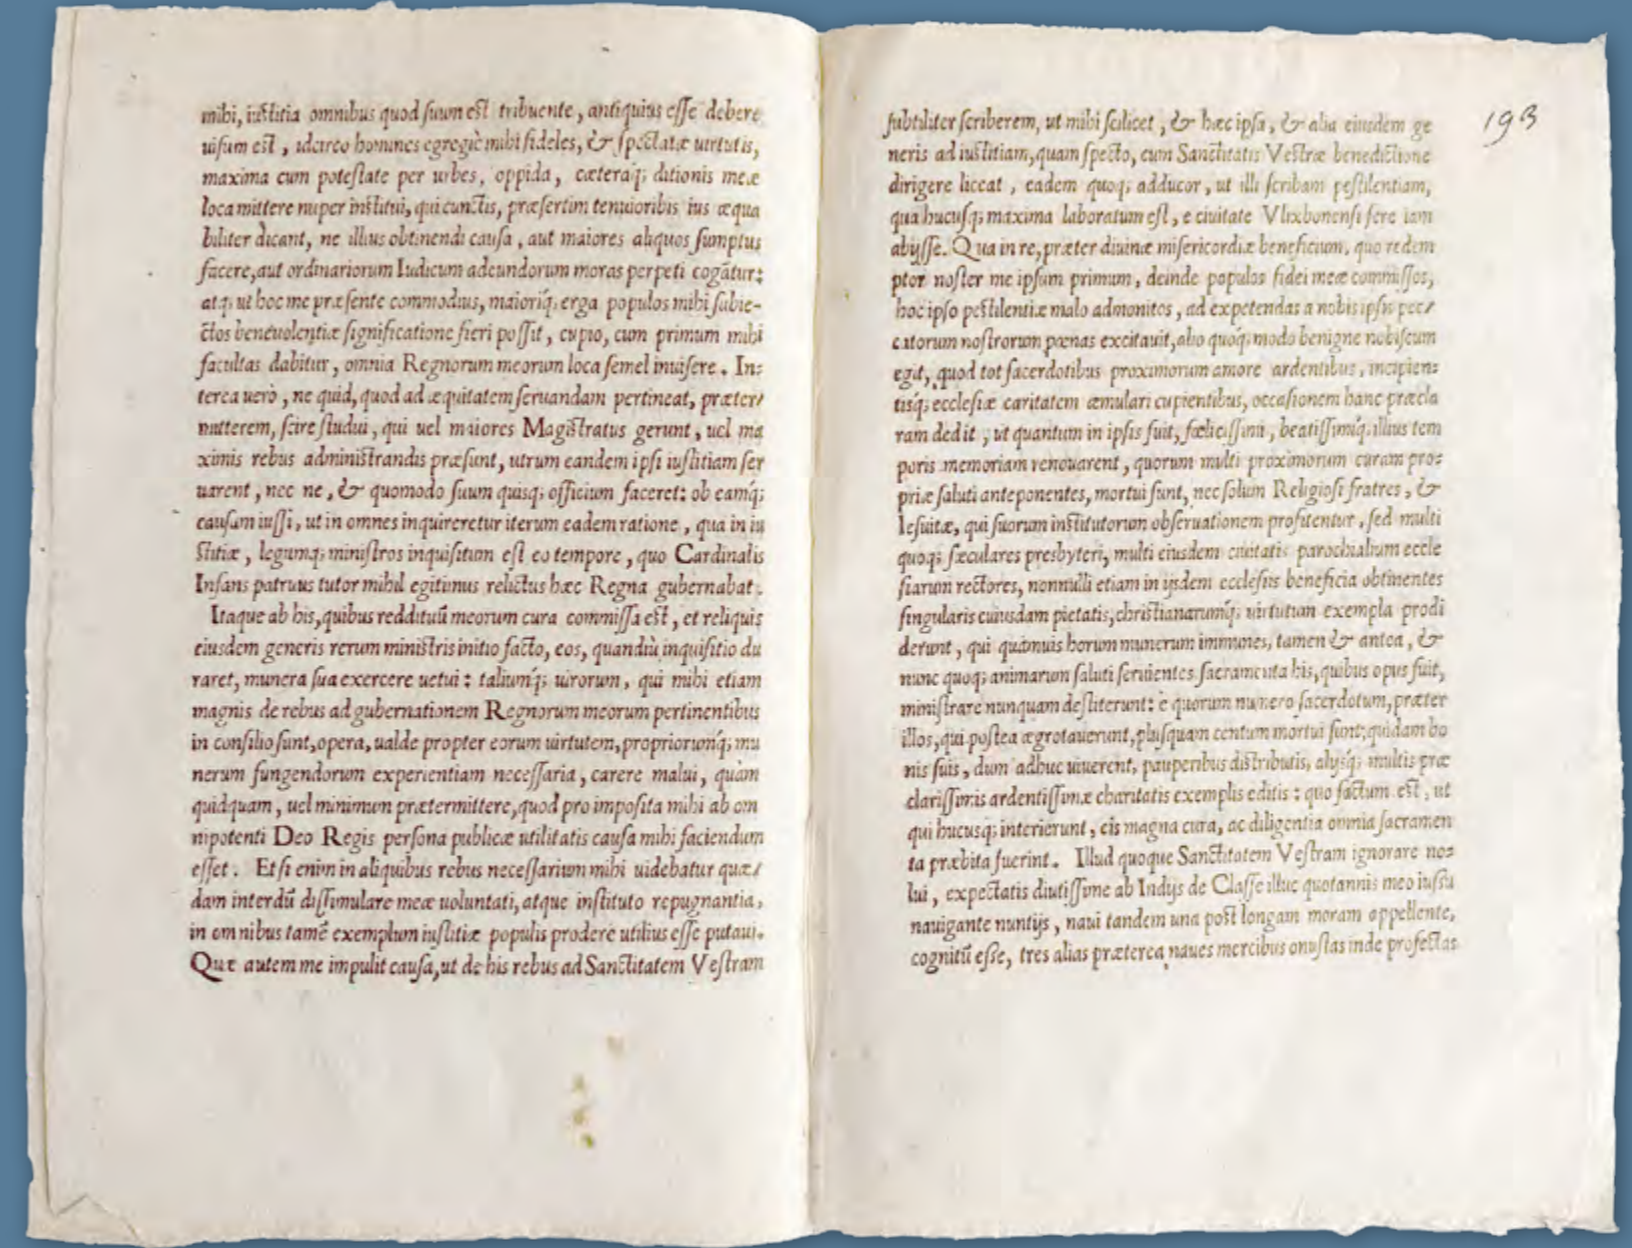 mihi, iustitia omnibus quod suum est tribuente, antiquius esse debere
uisum est, idcirco homines egregiè mihi fideles, & spectatæ uirtutis,
maxima cum potestate per urbes, oppida, cæteraq; ditionis meæ
loca mittere nuper institui, qui cunctis, præsertim tenuioribus ius æqua
biliter dicant, ne illius obtinendi causa, aut maiores aliquos sumptus
facere, aut ordinariorum Iudicum adeundorum moras perpeti cogãtur:
atq; ut hoc me præsente commodius, maioriq; erga populos mihi subie-
ctos beneuolentiæ significatione fieri possit, cupio, cum primum mihi
facultas dabitur, omnia Regnorum meorum loca semel inuisere. In:
terea uerò, ne quid, quod ad æquitatem seruandam pertineat, præter/
mitterem, scire studui, qui uel maiores Magistratus gerunt, uel ma
ximis rebus administrandis præsunt, utrum eandem ipsi iustitiam ser
uarent, nec ne, & quomodo suum quisq; officium faceret: ob eamq;
causam iussi, ut in omnes inquireretur iterum eadem ratione, qua in iu
stitiæ, legumq; ministros inquisitum est eo tempore, quo Cardinalis
Infans patruus tutor mihil egitimus relictus hæc Regna gubernabat.
Itaque ab his, quibus reddituũ meorum cura commissa est, et reliquis
eiusdem generis rerum ministris initio facto, eos, quandiù inquisitio du
raret, munera sua exercere uetui: taliumq; uirorum, qui mihi etiam
magnis de rebus ad gubernationem Regnorum meorum pertinentibus
in consilio sunt, opera, ualde propter eorum uirtutem, propriorumq; mu
nerum fungendorum experientiam necessaria, carere malui, quàm
quidquam, uel minimum prætermittere, quod pro imposita mihi ab om
nipotenti Deo Regis persona publicæ utilitatis causa mihi faciendum
esset. Et si enim in aliquibus rebus necessarium mihi uidebatur quæ/
dam interdũ dissimulare meæ uoluntati, atque instituto repugnantia,
in omnibus tamẽ exemplum iustitiæ populis prodere utilius esse putaui.
Quæ autem me impulit causa, ut de his rebus ad Sanctitatem Vestram
193
subtiliter scriberem, ut mihi scilicet, & hæc ipsa, & alia eiusdem ge
neris ad iustitiam, quam specto, cum Sanctitatis Vestræ benedictione
dirigere liceat, eadem quoq; adducor, ut illi scribam pestilentiam,
qua hucusq; maxima laboratum est, e ciuitate Vlixbonensi fere iam
abijsse. Qua in re, præter diuinæ misericordiæ beneficium, quo redem
ptor noster me ipsum primum, deinde populos fidei meæ commissos,
hoc ipso pestilentiæ malo admonitos, ad expetendas a nobis ipsis pec/
catorum nostrorum pœnas excitauit, alio quoq; modo benigne nobiscum
egit, quod tot sacerdotibus proximorum amore ardentibus, incipien:
tisq; ecclesiæ caritatem æmulari cupientibus, occasionem hanc præcla
ram dedit, ut quantum in ipsis fuit, fœlicissimi, beatissimiq. illius tem
poris memoriam renouarent, quorum multi proximorum curam pro:
priæ saluti anteponentes, mortui sunt, nec solum Religiosi fratres, &
Iesuitæ, qui suorum institutorum obseruationem profitentur, sed multi
quoq; sæculares presbyteri, multi eiusdem ciuitatis parochialium eccle
siarum rectores, nonnulli etiam in ijsdem ecclesiis beneficia obtinentes
singularis cuiusdam pietatis, christianarumq; uirtutum exempla prodi
derunt, qui quamuis horum munerum immunes, tamen & antea, &
nunc quoq; animarum saluti seruientes sacramenta his, quibus opus fuit,
ministrare nunquam destiterunt: è quorum numero sacerdotum, præter
illos, qui postea ægrotauerunt, plusquam centum mortui sunt; quidam bo
nis suis, dum adhuc uiuerent, pauperibus distributis, alijsq; multis præ
clarissimis ardentissimæ charitatis exemplis editis: quo factum est, ut
qui hucusq; interierunt, eis magna cura, ac diligentia omnia sacramen
ta præbita fuerint. Illud quoque Sanctitatem Vestram ignorare no:
lui, expectatis diutissime ab Indijs de Classe illuc quotannis meo iussu
nauigante nuntijs, naui tandem una post longam moram appellente,
cognitũ esse, tres alias præterea naues mercibus onustas inde profectas